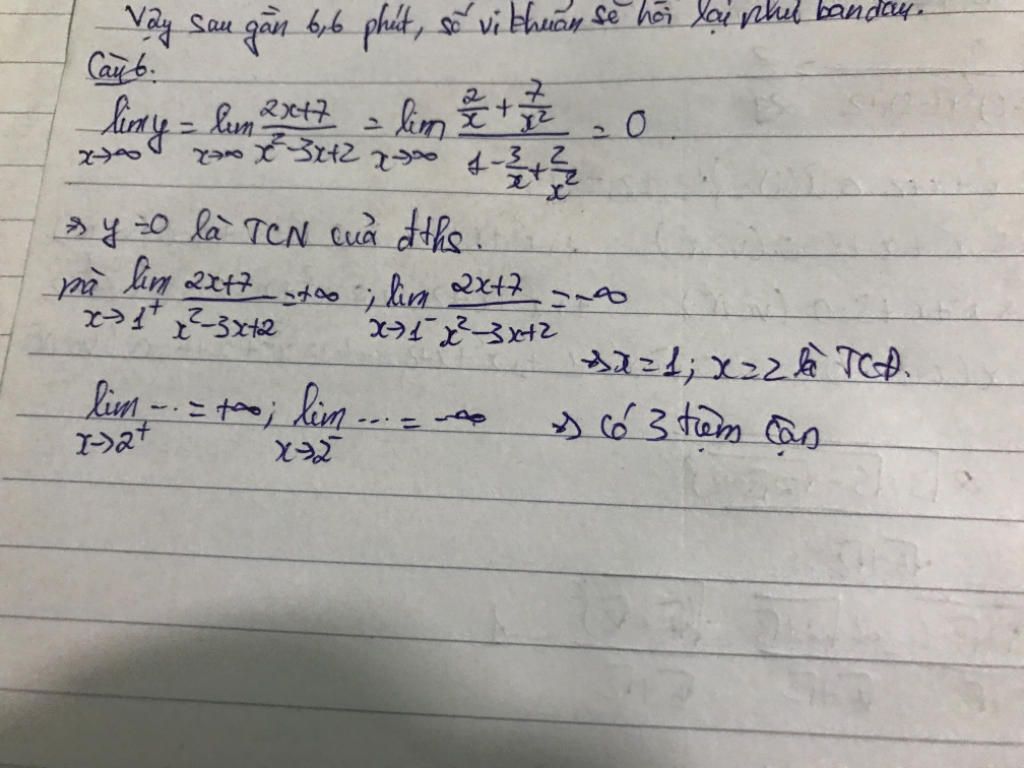 Vậy sau gần 6,6 phút, số vi khuẩn sẽ hồi lại như ban đầu.
Câu 6.
lim y = lim (2x+7)/(x²-3x+2) = lim (2/x + 7/x²)/(1 - 3/x + 2/x²) = 0.
x→∞ x→∞ x→∞
⇒ y=0 là TCN của đths.
mà lim (2x+7)/(x²-3x+2) = +∞ ; lim (2x+7)/(x²-3x+2) = -∞
x→1⁺ x→1⁻
⇒ x=1; x=2 là TCĐ.
lim ... = +∞; lim ... = -∞ ⇒ có 3 tiệm cận
x→2⁺ x→2⁻